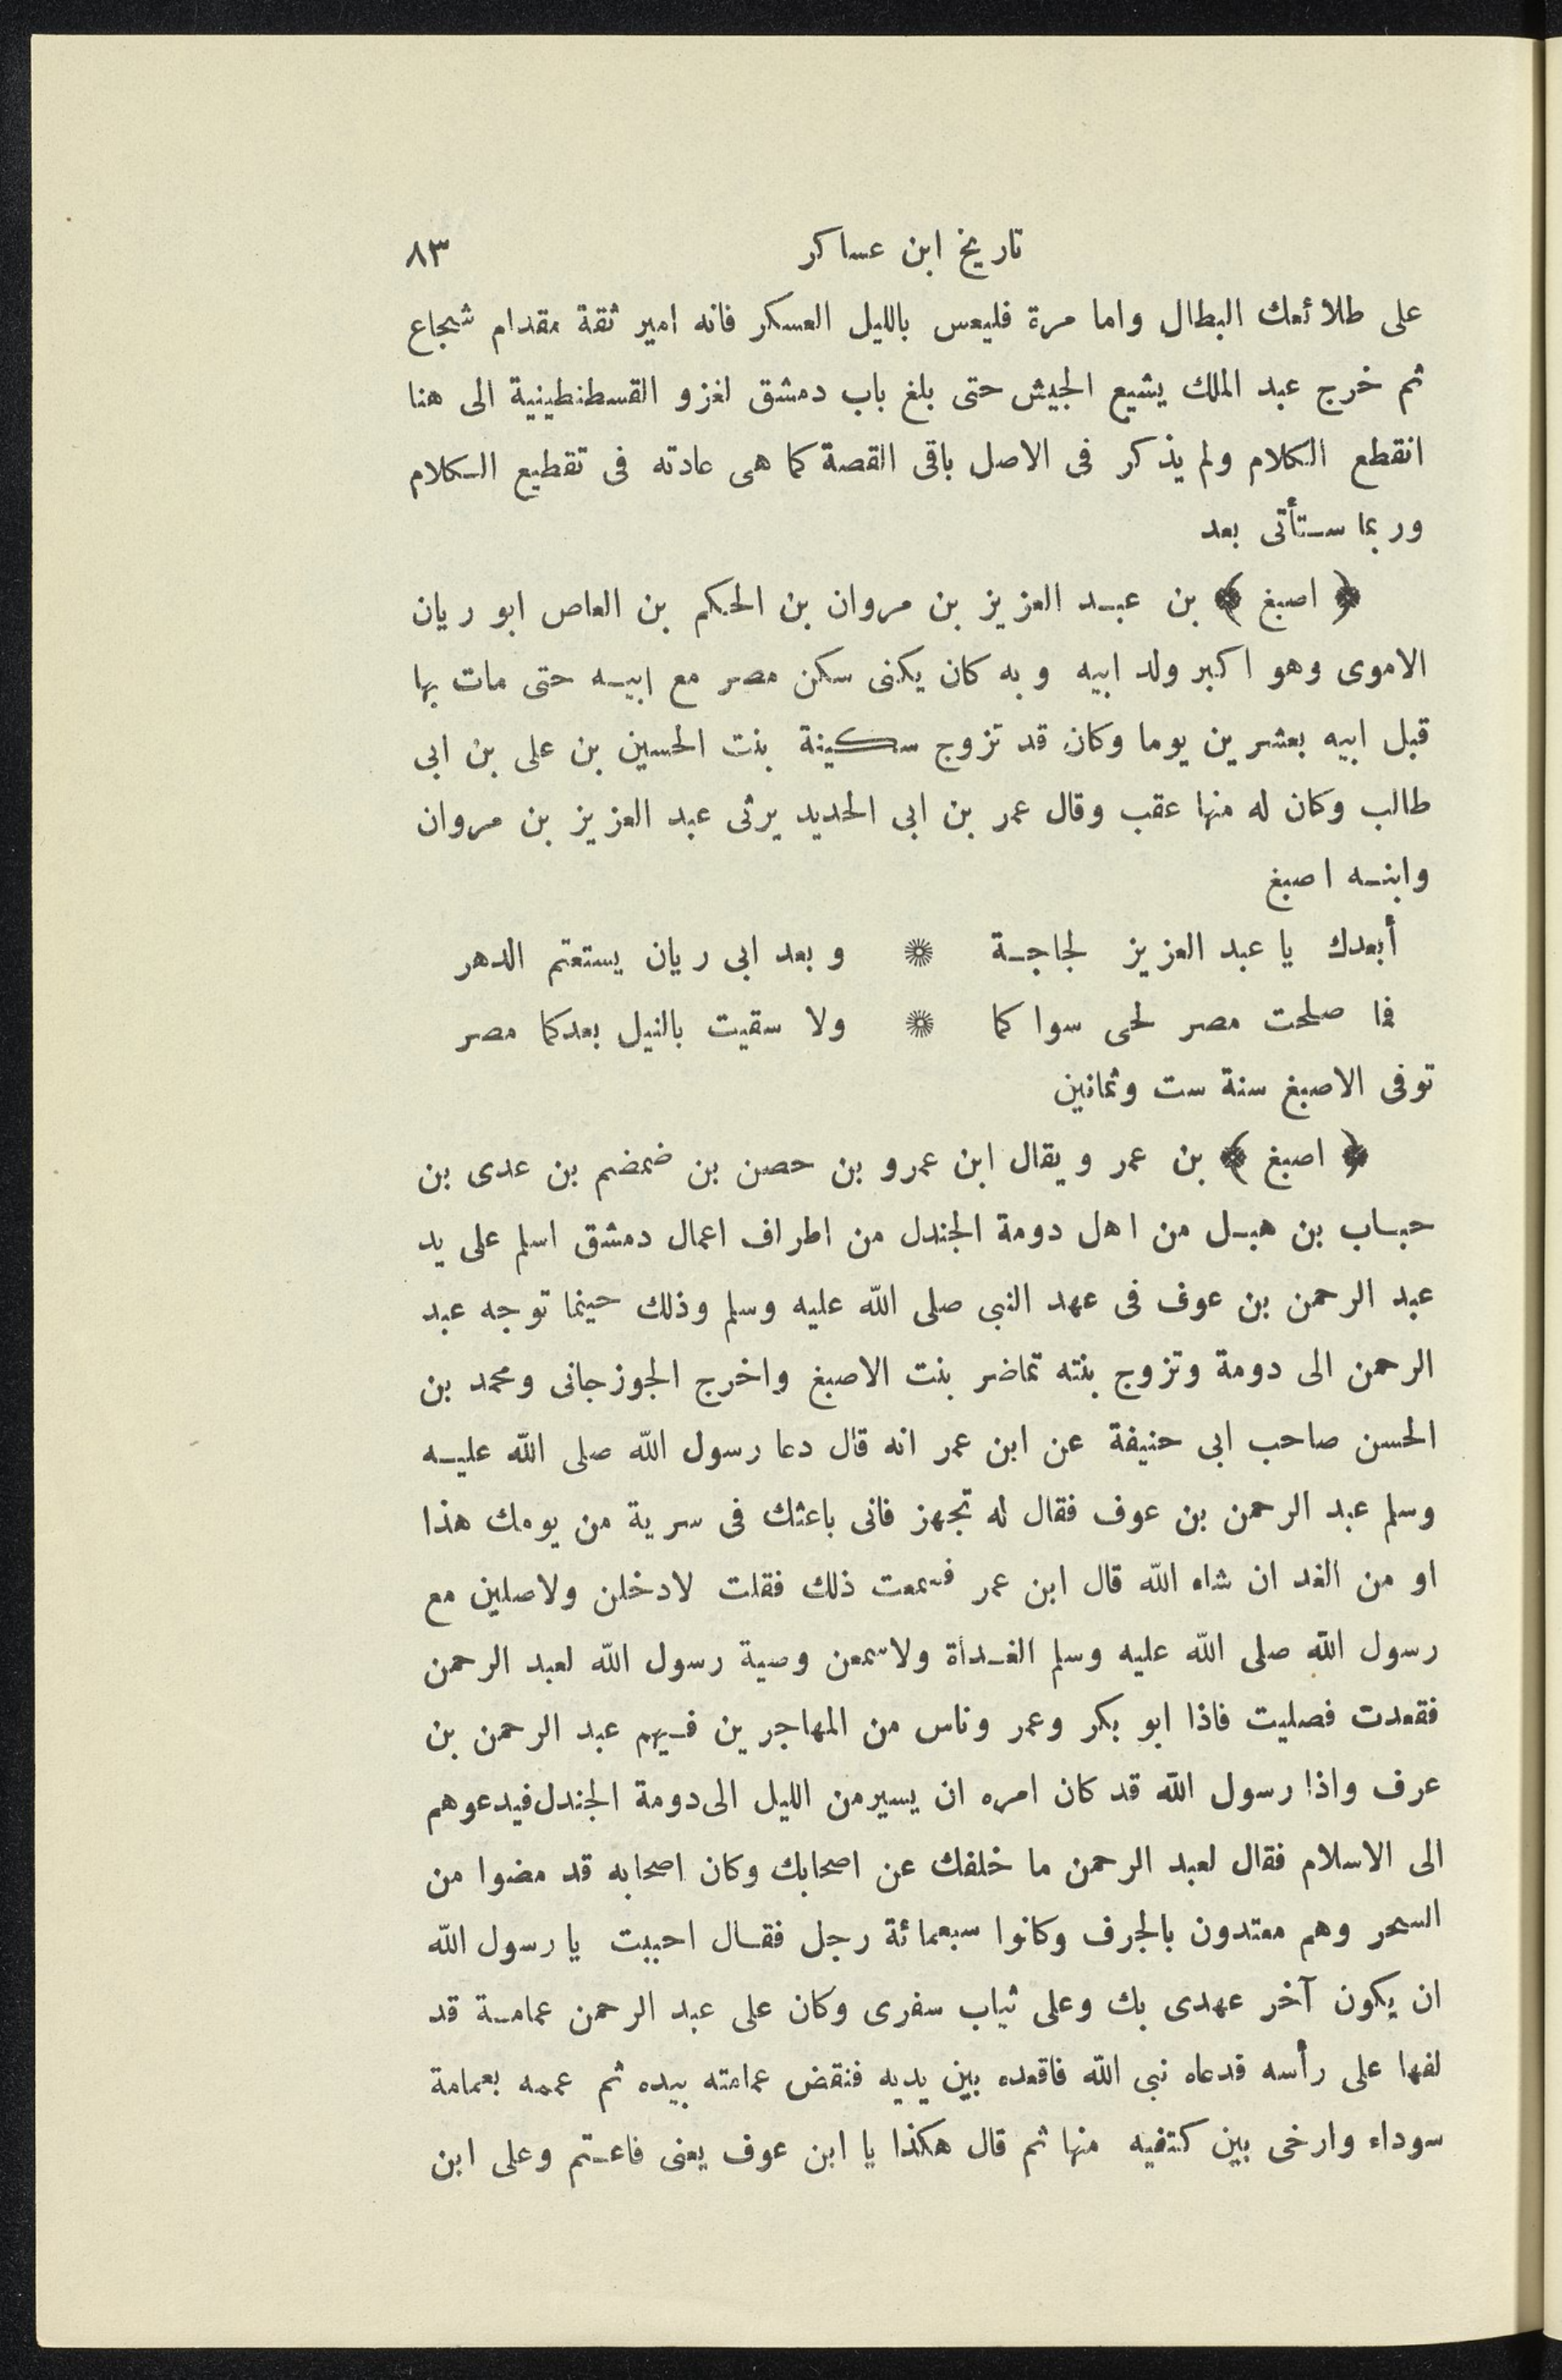 تاريخ ابن عساكر ٨٣
على طلائعك البطال واما مرة فليعس بالليل العسكر فانه امير ثقة مقدام شجاع
ثم خرج عبد الملك يشيع الجيش حتى بلغ باب دمشق لغزو القسطنطينية الى هنا
انقطع الكلام ولم يذكر فى الاصل باقى القصة كما هى عادته فى تقطيع الكلام
وربما ستأتى بعد
﴿ اصبغ ﴾ بن عبد العزيز بن مروان بن الحكم بن العاص ابو ريان
الاموى وهو اكبر ولد ابيه وبه كان يكنى سكن مصر مع ابيه حتى مات بها
قبل ابيه بعشرين يوما وكان قد تزوج سكينة بنت الحسين بن على بن ابى
طالب وكان له منها عقب وقال عمر بن ابى الحديد يرثى عبد العزيز بن مروان
وابنه اصبغ
أبعدك يا عبد العزيز لحاجة ❊ وبعد ابى ريان يستعتم الدهر
فما صلحت مصر لحى سواكما ❊ ولا سقيت بالنيل بعدكما مصر
توفى الاصبغ سنة ست وثمانين
﴿ اصبغ ﴾ بن عمر ويقال ابن عمرو بن حصن بن ضمضم بن عدى بن
حباب بن هبل من اهل دومة الجندل من اطراف اعمال دمشق اسلم على يد
عبد الرحمن بن عوف فى عهد النبى صلى الله عليه وسلم وذلك حينما توجه عبد
الرحمن الى دومة وتزوج بنته تماضر بنت الاصبغ واخرج الجوزجانى ومحمد بن
الحسن صاحب ابى حنيفة عن ابن عمر انه قال دعا رسول الله صلى الله عليه
وسلم عبد الرحمن بن عوف فقال له تجهز فانى باعثك فى سرية من يومك هذا
او من الغد ان شاء الله قال ابن عمر فسمعت ذلك فقلت لادخلن ولاصلين مع
رسول الله صلى الله عليه وسلم الغداة ولاسمعن وصية رسول الله لعبد الرحمن
فقعدت فصليت فاذا ابو بكر وعمر وناس من المهاجرين فيهم عبد الرحمن بن
عرف واذا رسول الله قد كان امره ان يسير من الليل الى دومة الجندل فيدعوهم
الى الاسلام فقال لعبد الرحمن ما خلفك عن اصحابك وكان اصحابه قد مضوا من
السحر وهم معتدون بالجرف وكانوا سبعمائة رجل فقال احببت يا رسول الله
ان يكون آخر عهدى بك وعلى ثياب سفرى وكان على عبد الرحمن عمامة قد
لفها على رأسه فدعاه نبى الله فاقعده بين يديه فنقض عمامته بيده ثم عممه بعمامة
سوداء وارخى بين كتفيه منها ثم قال هكذا يا ابن عوف يعنى فاعتم وعلى ابن